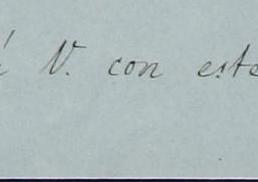 V. con este